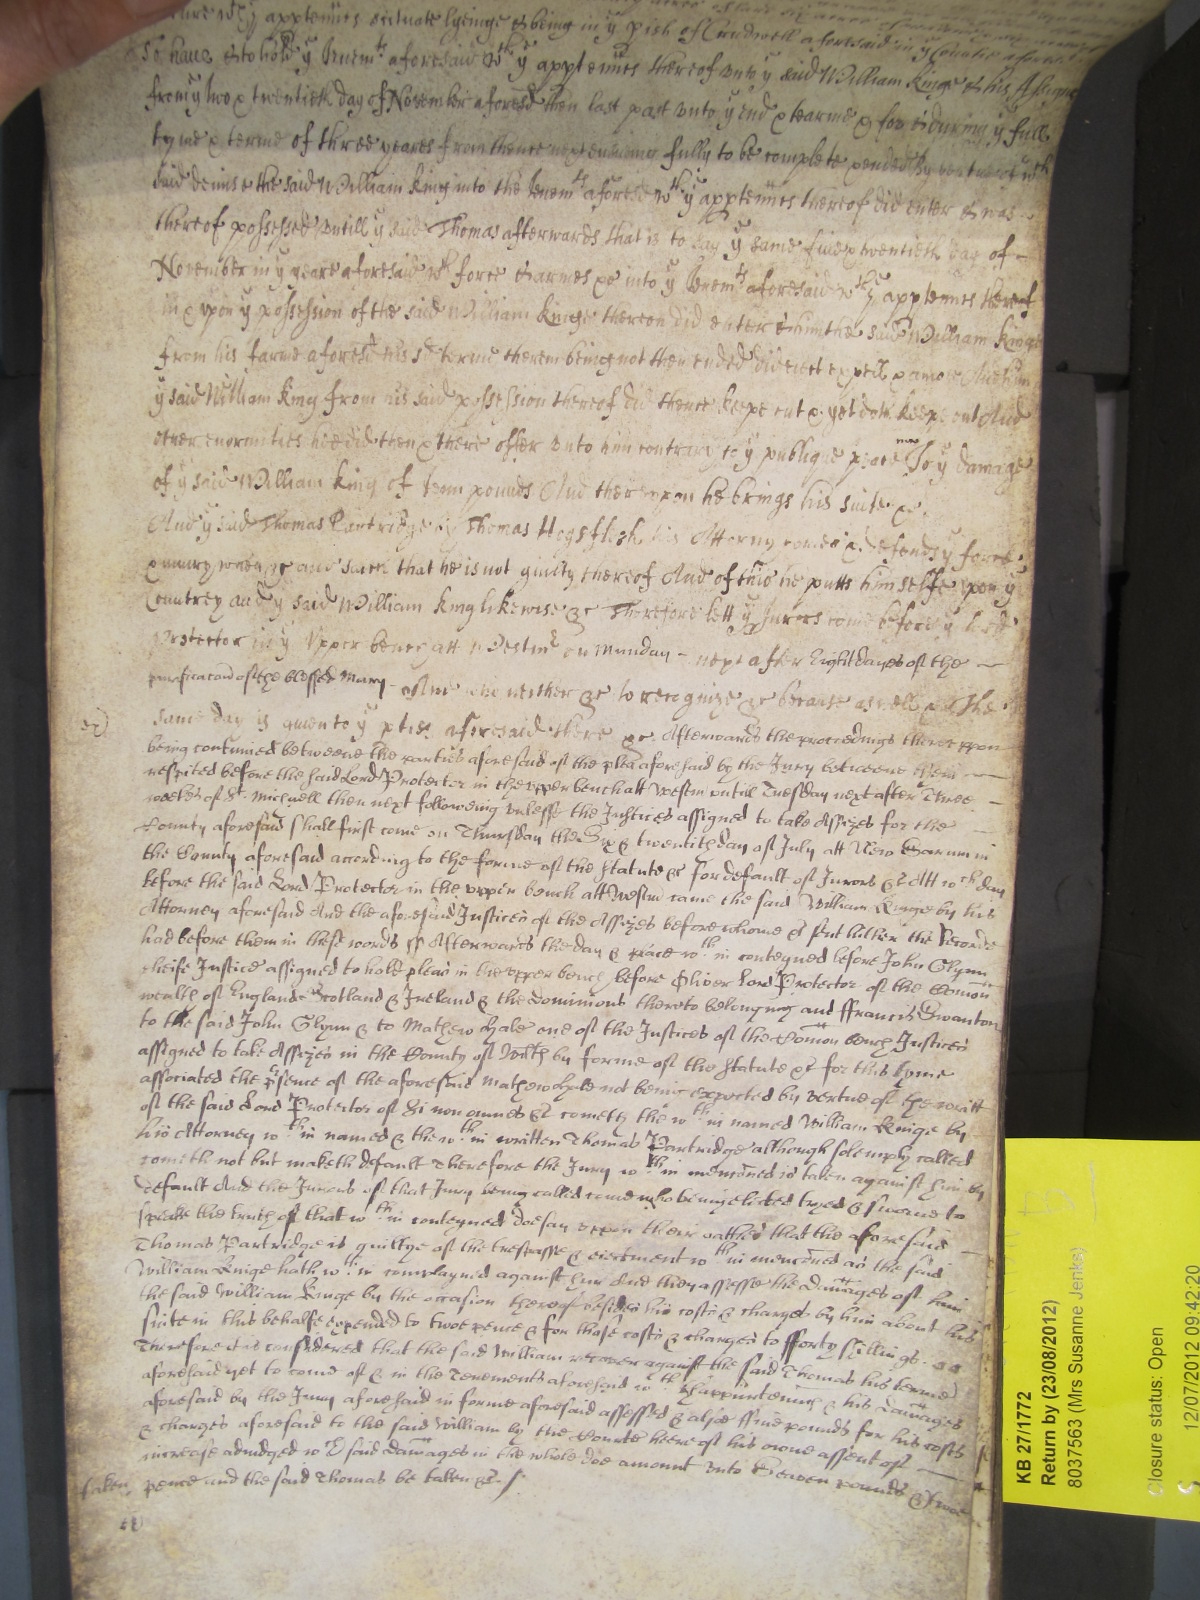 pasture wth y appten̄nes scituate lyeinge & being in y pish of Crudwell aforesaid in y Countie aforesd
To have & to hold y Tenemts aforesaid wth y apptennes thereof unto y said William Kinge & his Assignes
from y two & twentieth day of November aforesd then last past unto y end & tearme & for & during y full
tyme & terme of three yeares from thence next ensuing fully to be complete & ended By vertue of wch
said demise the said William King into the tenemts aforesd wth y apptennes thereof did enter & was
thereof possessed untill y said Thomas afterwards that is to say y same two & twentieth day of
November in y yeare aforesaid wth force & armes &c into y tenemts aforesaid wth y apptennes thereof
in & upon y possession of the said William Kinge thereon did enter & him the said William Kinge
from his farme aforesd his sd terme therein being not then ended did eiect expell & amove And him
y said William King from his said possession thereof did thence keepe out & yet doth keepe out And
other enormities hee did then & there offer unto him contrary to y publique peace To y damage
of y said William King of Tenn pounds And thereupon he brings his suite &c
And y said Thomas Partridge by Thomas Hogsflesh his Attorny comes & defends y force
& iniury when &c and saith that he is not guilty thereof And of this he putts himselfe upon y
Countrey and y said William King likewise &c Therefore lett y Jurors come before y Lord
Protector in y Upper bench att Westmr on Munday next after Eight dayes of the
purificacon of the blessed Mary of ne who neither &c to recognize &c because as well &c The
same day is given to y pties aforesaid there &c. Afterwards the proceedings thereuppon
being continued betweene the parties aforesaid of the plea aforesaid by the Jury betweene them
respited before the said Lord Protector in the upper bench att Westm untill Tuesday next after Three
weekes of St. Michaell then next following unlesse the Justices assigned to take Assizes for the
County aforesaid shall first come on Thursday the Six & twentith day of July att New Sarum in
the County aforesaid according to the forme of the statute &c for default of Jurors &c Att wch day
before the said Lord Protector in the upper bench att Westm came the said William Kinge by his
Attorney aforesaid And the aforesaid Justices of the Assizes before whome &c sent hither the Recorde
had before them in these words ss Afterwards the day & place wthin conteyned before John Glynn
cheife Justice assigned to hold pleas in the upper bench before Oliver Lord Protector of the Comon
wealth of England Scotland & Ireland & the Dominions thereto belonging and ffrancis Swanton
to the said John Glynn & to Mathew Hale one of the Justices of the Comon bench Justices
assigned to take Assizes in the County of Wilts by forme of the statute &c for this tyme
associated the psence of the aforesaid Mathew Hale not being expected by vertue of the writt
of the said Lord Protector of Si non omnes &c cometh the wthin named William Kinge by
his Attorney wthin named & the wthin written Thomas Partridge although solemply called
cometh not but maketh default Therefore the Jury wthin mencōned is taken against him by
default And the Jurors of that Jury being called come who being elected tryed & sworne to
speake the truth of that wthin conteyned doe say uppon their oathes that the aforesaid
Thomas Partridge is guiltye of the trespasse & eiectment wthin mencōned as the said
William Kinge hath wthin complayned against him And they assesse the damages of him
the said William Kinge by the occasion thereof besides his costs & charges by him about his
suite in this behalfe expended to twoe pence & for those costs & charges to fforty shillings
Therefore it is considered that the said William recover against the said Thomas his terme
aforesaid yet to come of & in the Tenements aforesaid wth thappurtennes & his damages
aforesaid by the Jury aforesaid in forme aforesaid assessed & alsoe ffive pounds for his costs
& charges aforesaid to the said William by the Courte heere of his owne assent of
increase adiudged wch said damages in the whole doe amount unto Seaven pounds & twoe
taken pence and the said Thomas be taken &c.
KB 27/1772
Return by (23/08/2012)
8037563 (Mrs Susanne Jenks)
Closure status: Open
12/07/2012 09:42:20